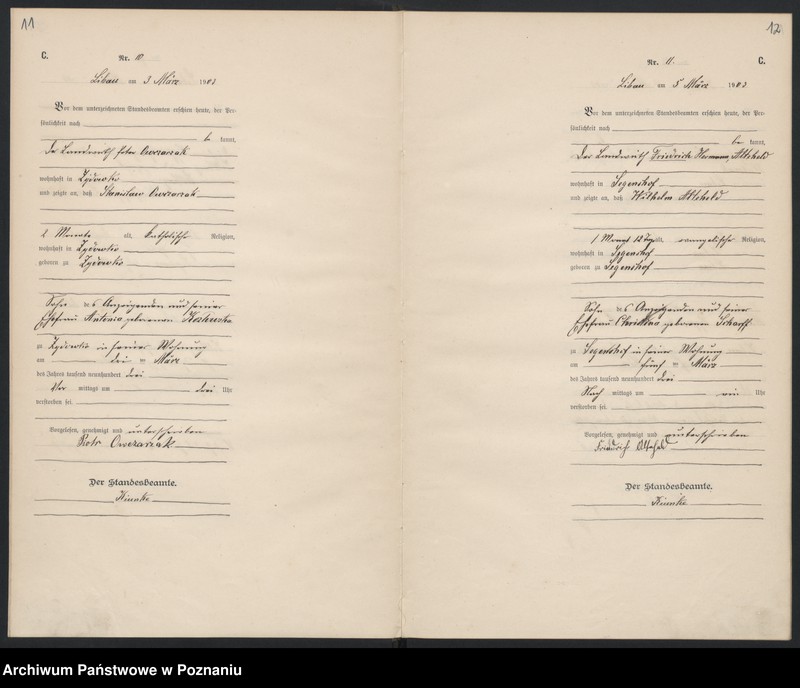 11
C.
Nr. 10
Libau am 3 März 1903
Vor dem unterzeichneten Standesbeamten erschien heute, der Per-
sönlichkeit nach
be kannt,
der Landwirth Peter Owczarzak
wohnhaft in Zydowko
und zeigte an, daß Stanislaus Owczarzak
2 Monate alt, katholischer Religion,
wohnhaft in Zydowko
geboren zu Zydowko
Sohn des Anzeigenden und seiner
Ehefrau Antonia geborenen
zu Zydowko in seiner Wohnung
am drei ten März
des Jahres tausend neunhundert drei
Vor mittags um drei Uhr
verstorben sei.
Vorgelesen, genehmigt und unterschrieben
Piotr Owczarzak
Der Standesbeamte.
12
Nr. 11.
C.
Libau am 5 März 1903
Vor dem unterzeichneten Standesbeamten erschien heute, der Per-
sönlichkeit nach
be kannt,
der Landwirth Friedrich Hermann Alteheld
wohnhaft in Segenshof
und zeigte an, daß Wilhelm Alteheld
1 Monat 12 Tage alt, evangelischer Religion,
wohnhaft in Segenshof
geboren zu Segenshof
Sohn des Anzeigenden und seiner
Ehefrau Christine geborenen Scharff
zu Segenshof in seiner Wohnung
am fünf ten März
des Jahres tausend neunhundert drei
Nach mittags um ein Uhr
verstorben sei.
Vorgelesen, genehmigt und unterschrieben
Friedrich Alteheld
Der Standesbeamte.
Archiwum Państwowe w Poznaniu